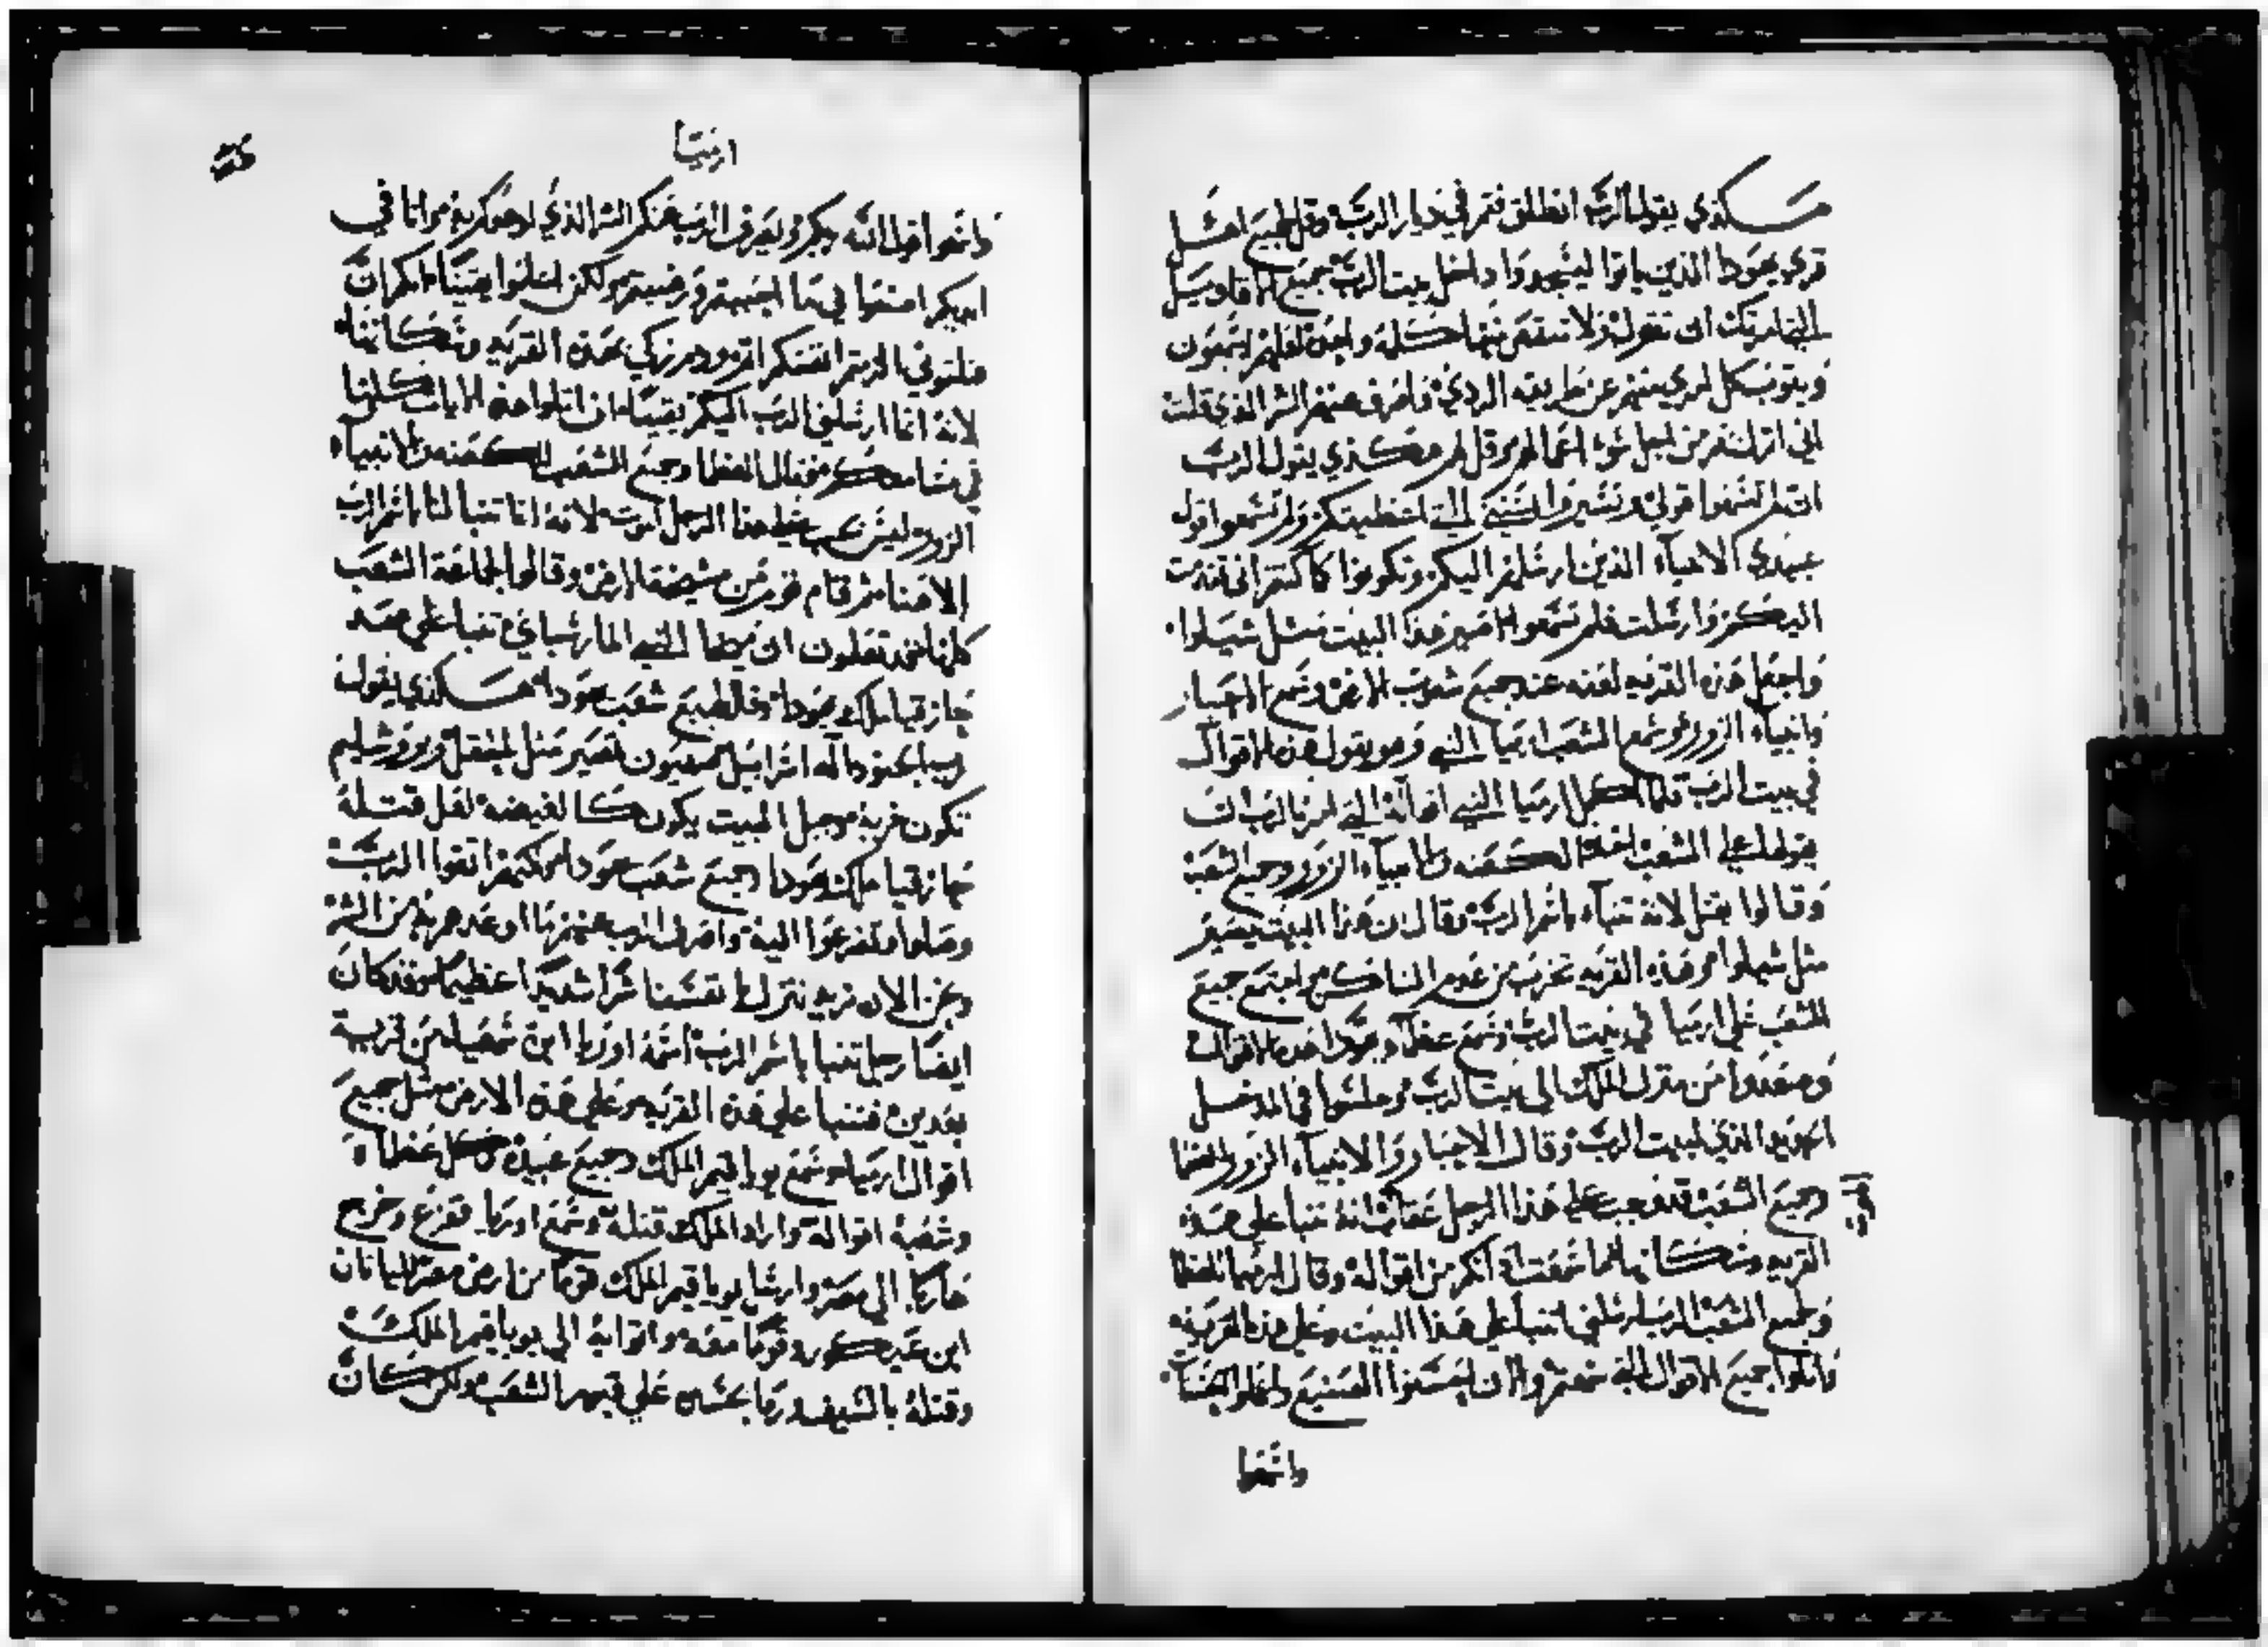 هكذي يقول الرب انطلق فقم في ديار الرب وقل لجميع اهل
قري يهودا الذين ياتوا ليسجدوا داخل بيت الرب جميع الاقاويل
التي امرتك ان تقول ولا تنقص منها كلمة واحدة لعلهم يسمعون
ويتوب كل امري منهم عن طريقه الردي فاصرف عنهم الشر الذي قلت
اني انزله بهم من اجل سوء اعمالهم وقل لهم هكذي يقول الرب
ان لم تسمعوا قولي وتسيروا بسنتي التي اعطيتكم ولم تسمعوا قول
عبيدي الانبياء الذين ارسلتهم اليكم وتكونوا كما كنتم اني تقدمت
اليكم وارسلت فلم تسمعوا اصير هذا البيت مثل شيلوا
واجعل هذه القرية لعنه عند جميع شعوب الارض وسمع الاحبار
وانبياء الزور وسمع الشعب ارميا النبي وهو يقول هذه الاقوال
في بيت الرب فلما اكمل ارميا النبي اقواله التي امره الرب ان
يقولها علي الشعب اخذه الكهنه والانبياء الزور وجميع الشعب
وقالوا يقتل لانه تنباء باسم الرب وقال ان هذا البيت يصير
مثل شيلوا وهذه القريه تخرب من عدم الساكن واجتمع جميع
الشعب علي ارميا في بيت الرب وسمع عظماء يهودا هذه الاقوال
وصعدوا من منزل الملك الي بيت الرب وجلسوا في المدخل
الجديد الذي لبيت الرب وقال الاحبار والانبياء الزور للعظما
وجميع الشعب قد وجب علي هذا الرجل عقاب انه تنبا علي هذه
القريه وسكانها كما سمعت اذانكم من اقواله وقال ارميا للعظما
ولجميع الشعب الرب ارسلني اتنبا علي هذا البيت وعلي هذه القرية
واتلوا جميع الاقوال التي سمعتم والان احسنوا الصنيع واعملوا الحسنات
واسمعوا
ارميا
واسمعوا قول الله ربكم ويصرف الرب عنكم الشر الذي اوعدكم به وانا في
ايديكم اصنعوا بي ما احببتم ورضيتم ولكن اعلموا يقينا انكم ان
قتلتوني الزمتم انفسكم اثم ودم زكي هذه القريه وسكانها
لانه انما ارسلني الرب اليكم يقينا ان اتلوا هذه الايات كلها
في مسامعكم فقال العظما وجميع الشعب للكهنه والانبياء
الزور ليس يجب علي هذا الرجل الموت لانه انما تنبا لنا باسم الرب
الاهنا ثم قام قوم من مشيخة الارض وقالوا لجماعة الشعب
كلها قد تعلمون ان ميخا النبي المارشياي تنبا علي عهد
حازقيا ملك يهودا وقال لجميع شعب يهودا هكذي يقول
رب الجنود اله اسرايل صهيون تصير مثل الحقل ويورشليم
تكون خربه وجبل البيت يكون كالغيضه لعل قتله
حازقيا ملك يهودا وجميع شعب يهودا لكنهم اتقوا الرب
وصلوا وتضرعوا اليه واصرف الرب عنهم ما اوعدهم به من الشر
ونحن الان نريد ننزل بانفسنا شرا شديدا عظيما وقد كان
ايضا رجل تنبا باسم الرب اسمه اوريا ابن شمعيا من قرية
بعدين فتنبا علي هذه القريه وعلي هذه الارض مثل جميع
اقوال ارميا وسمع يوياقيم الملك وجميع عبيده وكل عظماء
وشعبه اقواله واراد الملك قتله وسمع اوريا ففزع وخرج
هاربا الي مصر وارسل يوياقيم الملك قوما من ارض مصر اليا ناتان
ابن عيدكور وقوما معه واتوا به الي يوياقيم الملك
وقتله بالسيف ورما بجسده علي قبور الشعب ولكن كان